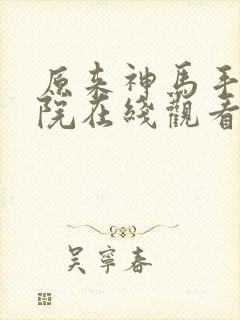 原来神馬手
院在綫觀看
吳寧春